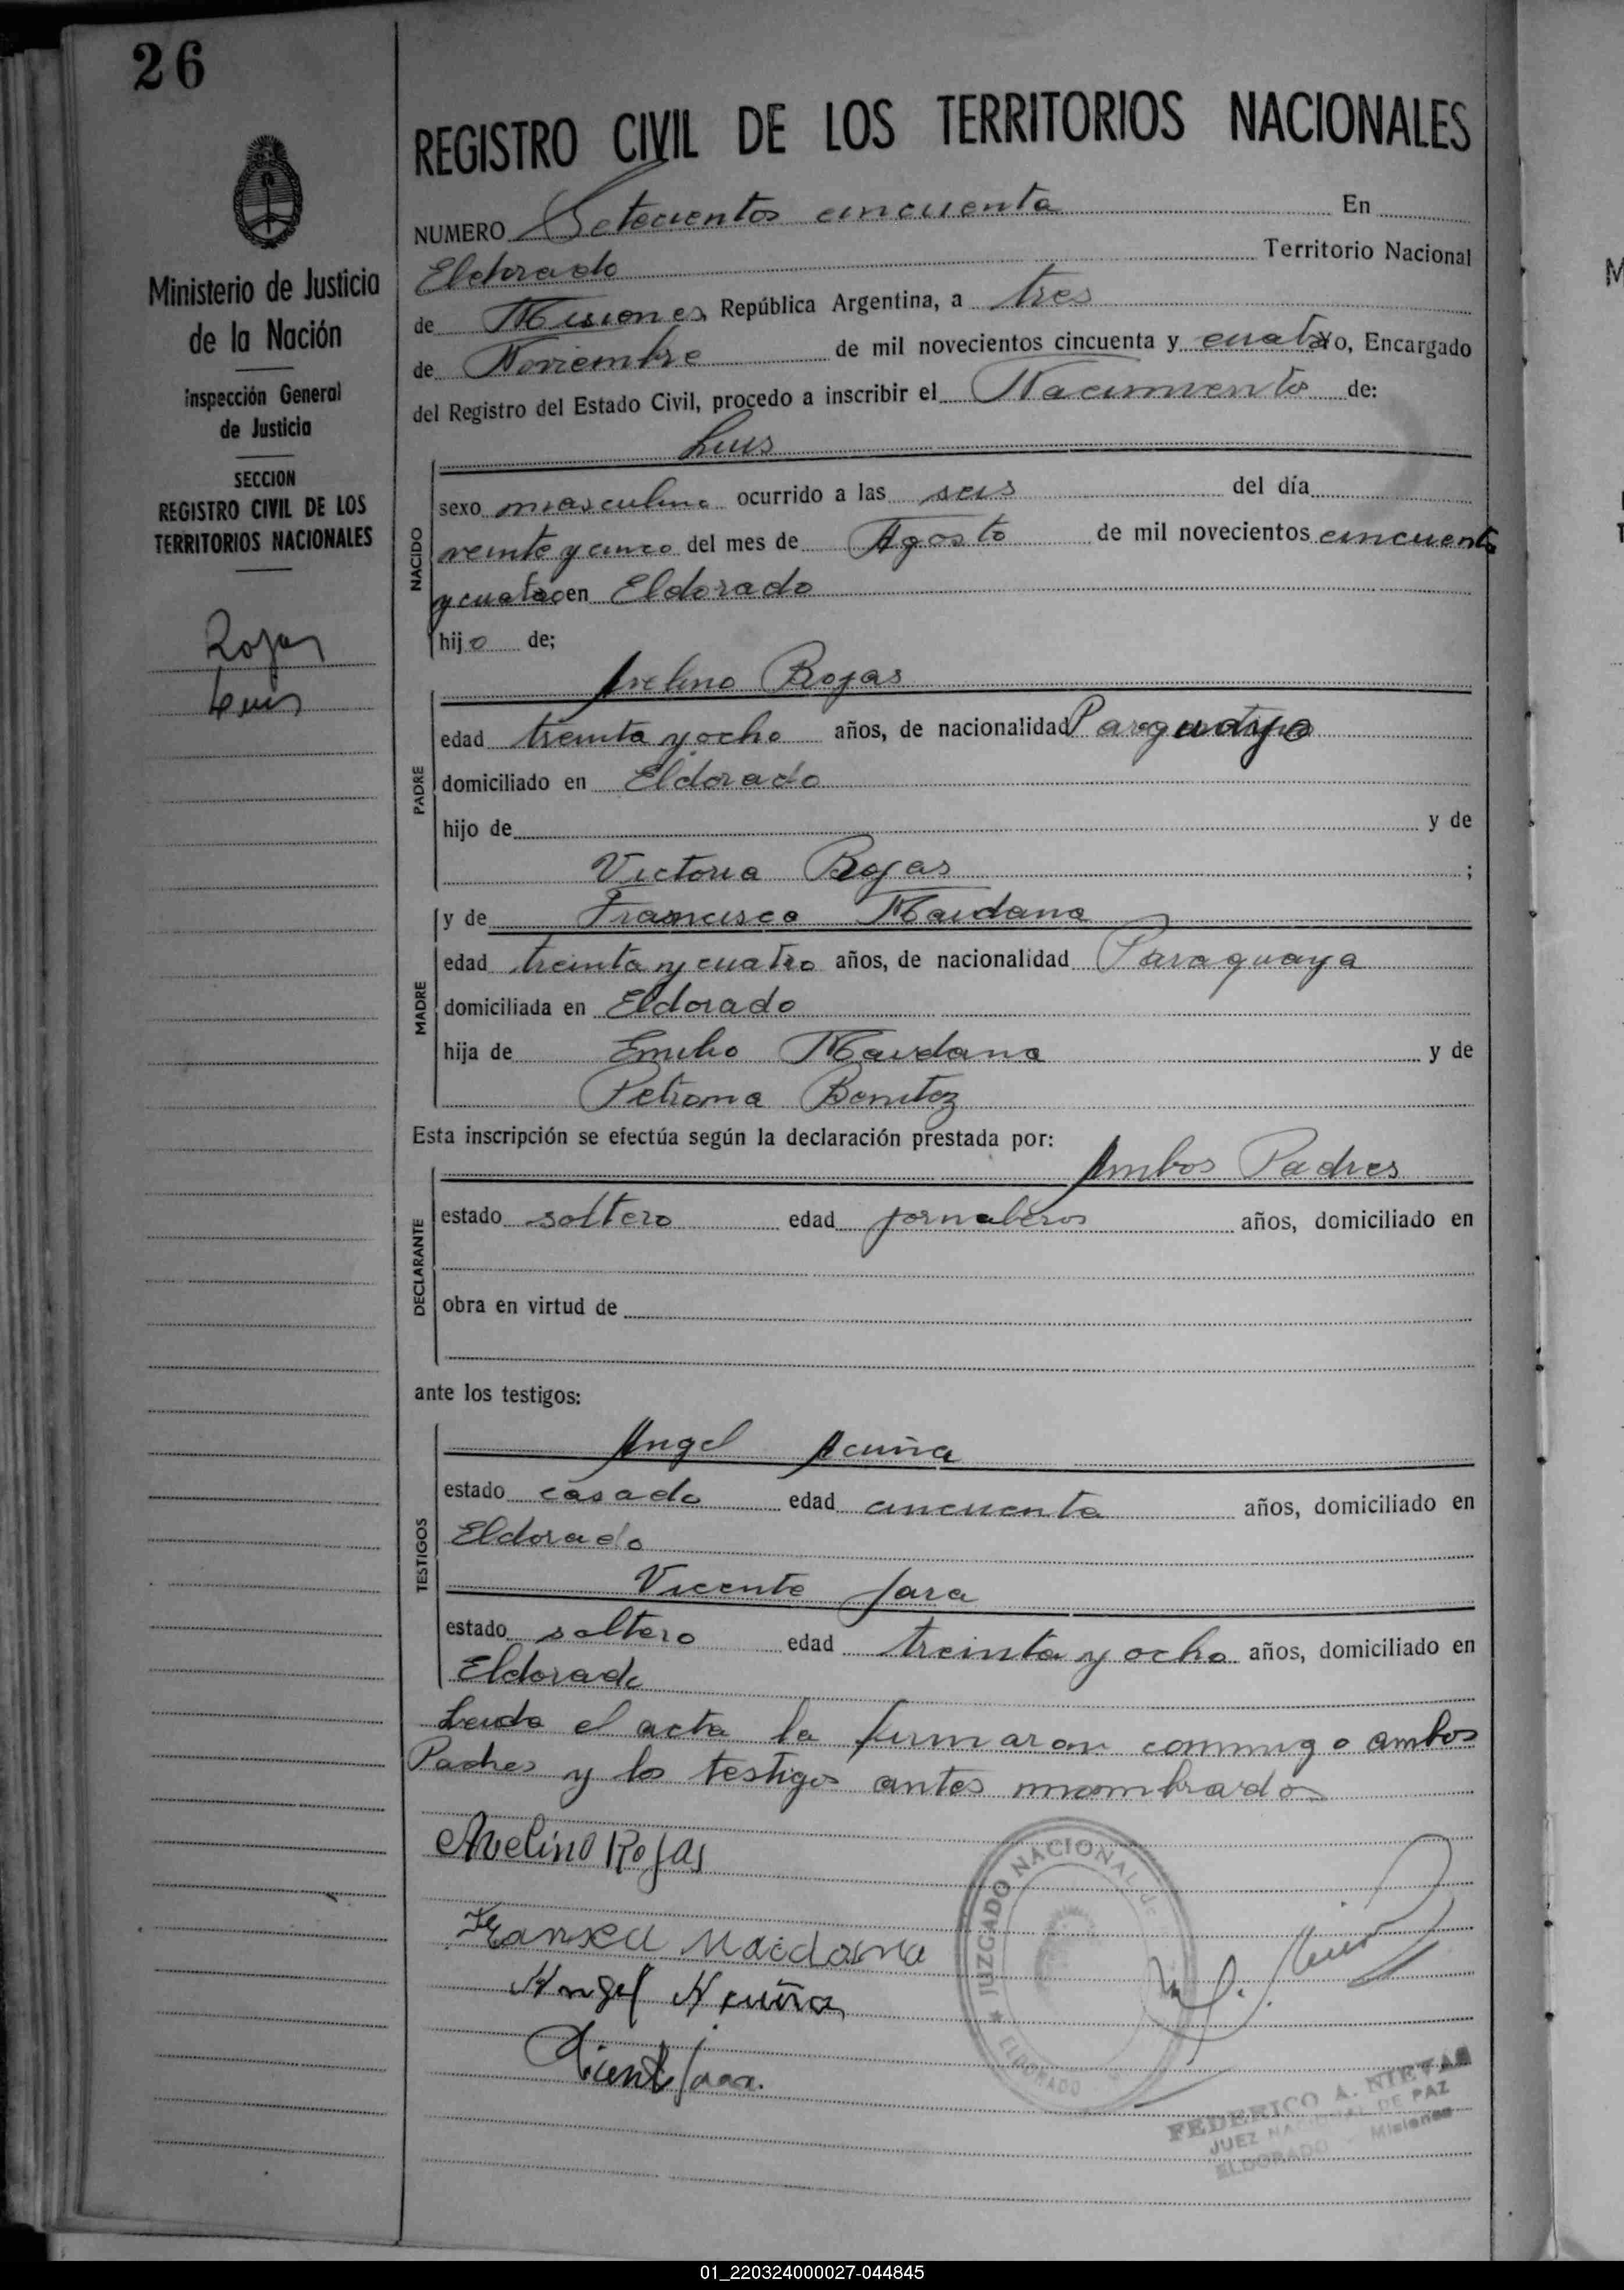 26
Ministerio de Justicia
de la Nación
Inspección General
de Justicia
SECCION
REGISTRO CIVIL DE LOS
TERRITORIOS NACIONALES
Rojas
Luis
REGISTRO CIVIL DE LOS TERRITORIOS NACIONALES
NUMERO Setecientos cincuenta En
Eldorado Territorio Nacional
de Misiones, República Argentina, a tres
de Noviembre de mil novecientos cincuenta y cuatro, Encargado
del Registro del Estado Civil, procedo a inscribir el Nacimiento de:
Luis
NACIDO
sexo masculino ocurrido a las seis del día
veinte y cinco del mes de Agosto de mil novecientos cincuenta
y cuatro en Eldorado
hijo de;
Avelino Rojas
PADRE
edad treinta y ocho años, de nacionalidad Paraguaya
domiciliado en Eldorado
hijo de y de
Victoria Rojas ;
y de Francisca Maidana
MADRE
edad treinta y cuatro años, de nacionalidad Paraguaya
domiciliada en Eldorado
hija de Emilio Maidana y de
Petrona Benitez
Esta inscripción se efectúa según la declaración prestada por:
Ambos Padres
DECLARANTE
estado soltero edad jornaleros años, domiciliado en
obra en virtud de
ante los testigos:
TESTIGOS
Angel Acuña
estado casado edad cincuenta años, domiciliado en
Eldorado
Vicente Jara
estado soltero edad treinta y ocho años, domiciliado en
Eldorado
Leida el acta la firmaron conmigo ambos
Padres y los testigos antes nombrados
Avelino Rojas
Maidana
Angel Acuña
Vicente Jara.
JUZGADO NACIONAL DE
ELDORADO
FEDERICO A. NIEVAS
JUEZ NACIONAL DE PAZ
ELDORADO Misiones
01_220324000027-044845